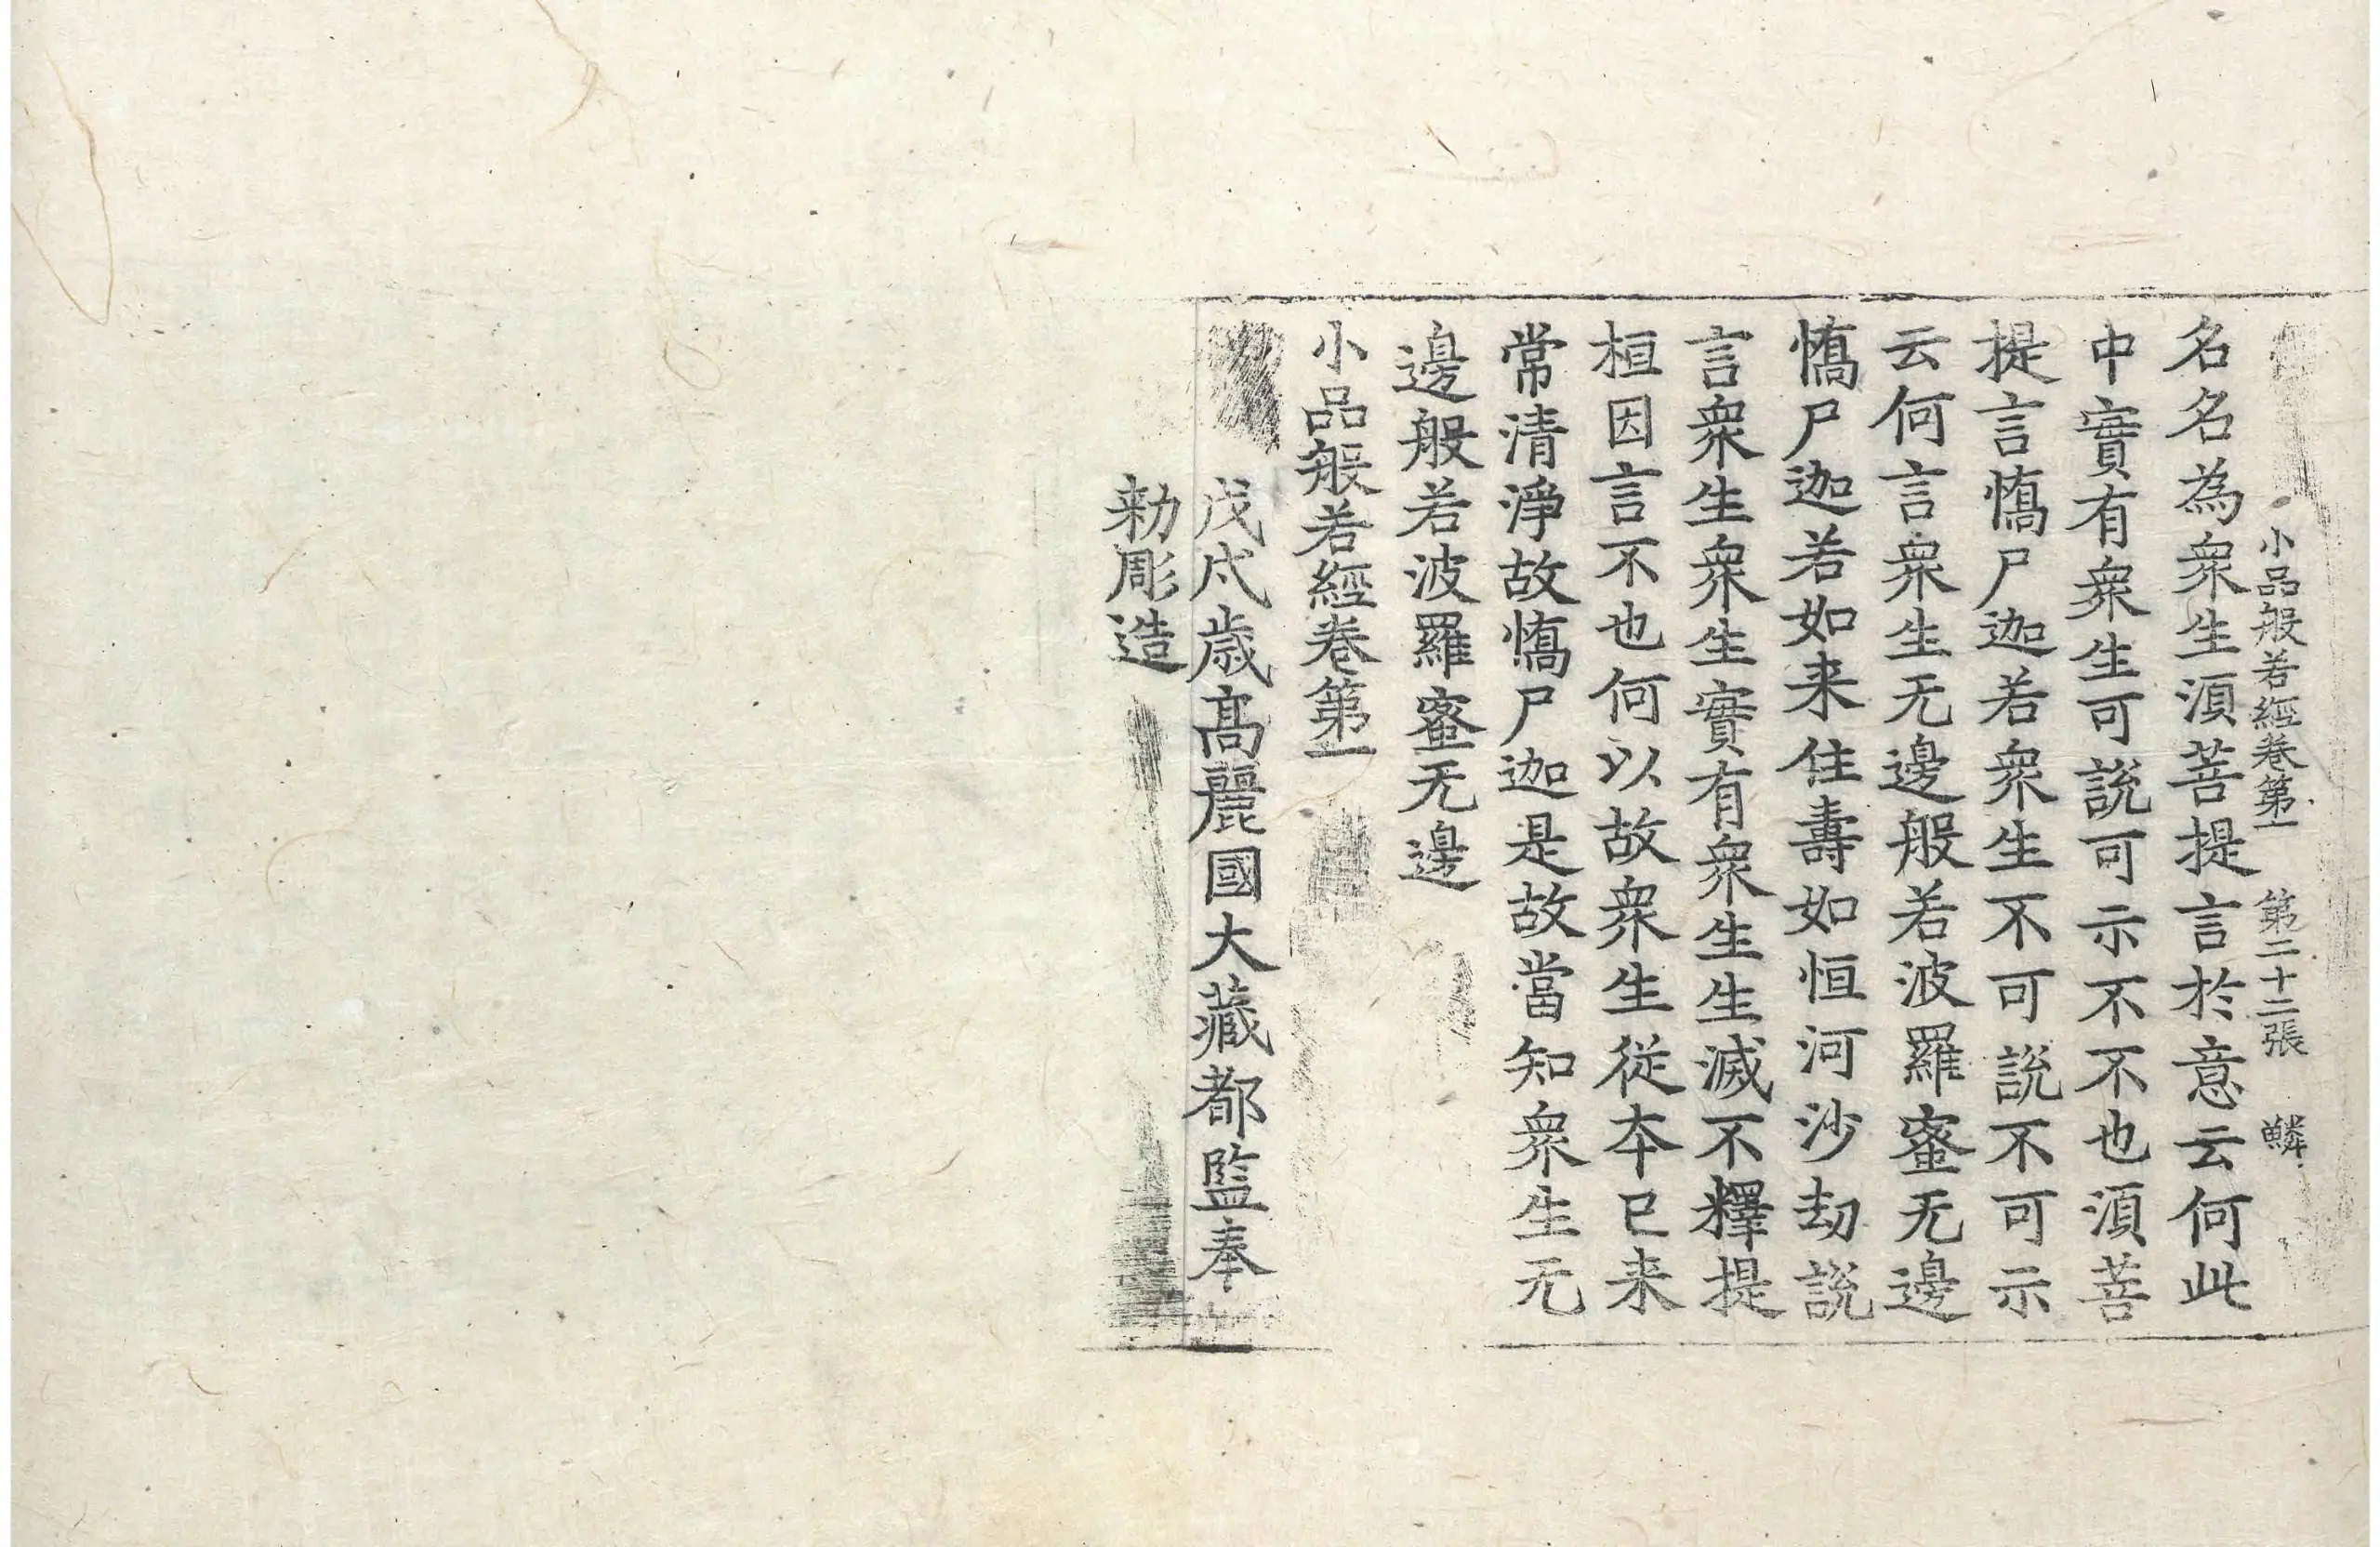 小品般若經卷第一 第二十二張 鱗
名名為衆生湏菩提言於意云何此
中實有衆生可說可示不不也湏菩
提言憍尸迦若衆生不可說不可示
云何言衆生无邊般若波羅蜜无邊
憍尸迦若如来住壽如恒河沙劫說
言衆生衆生實有衆生生滅不釋提
桓因言不也何以故衆生從本已来
常清淨故憍尸迦是故當知衆生无
邊般若波羅蜜无邊
小品般若經卷第一
戊戌歲髙麗國大藏都監奉
勑彫造